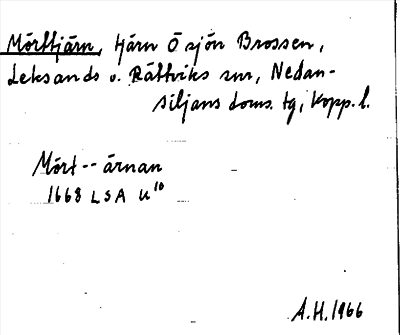 Mörttjärn, tjärn Ö sjön Brossen,
Leksands o. Rättviks snr, Nedan-
siljans doms. tg, Kopp. l.
Mört--ärnan
1668 LSA U¹⁰
A.H. 1966